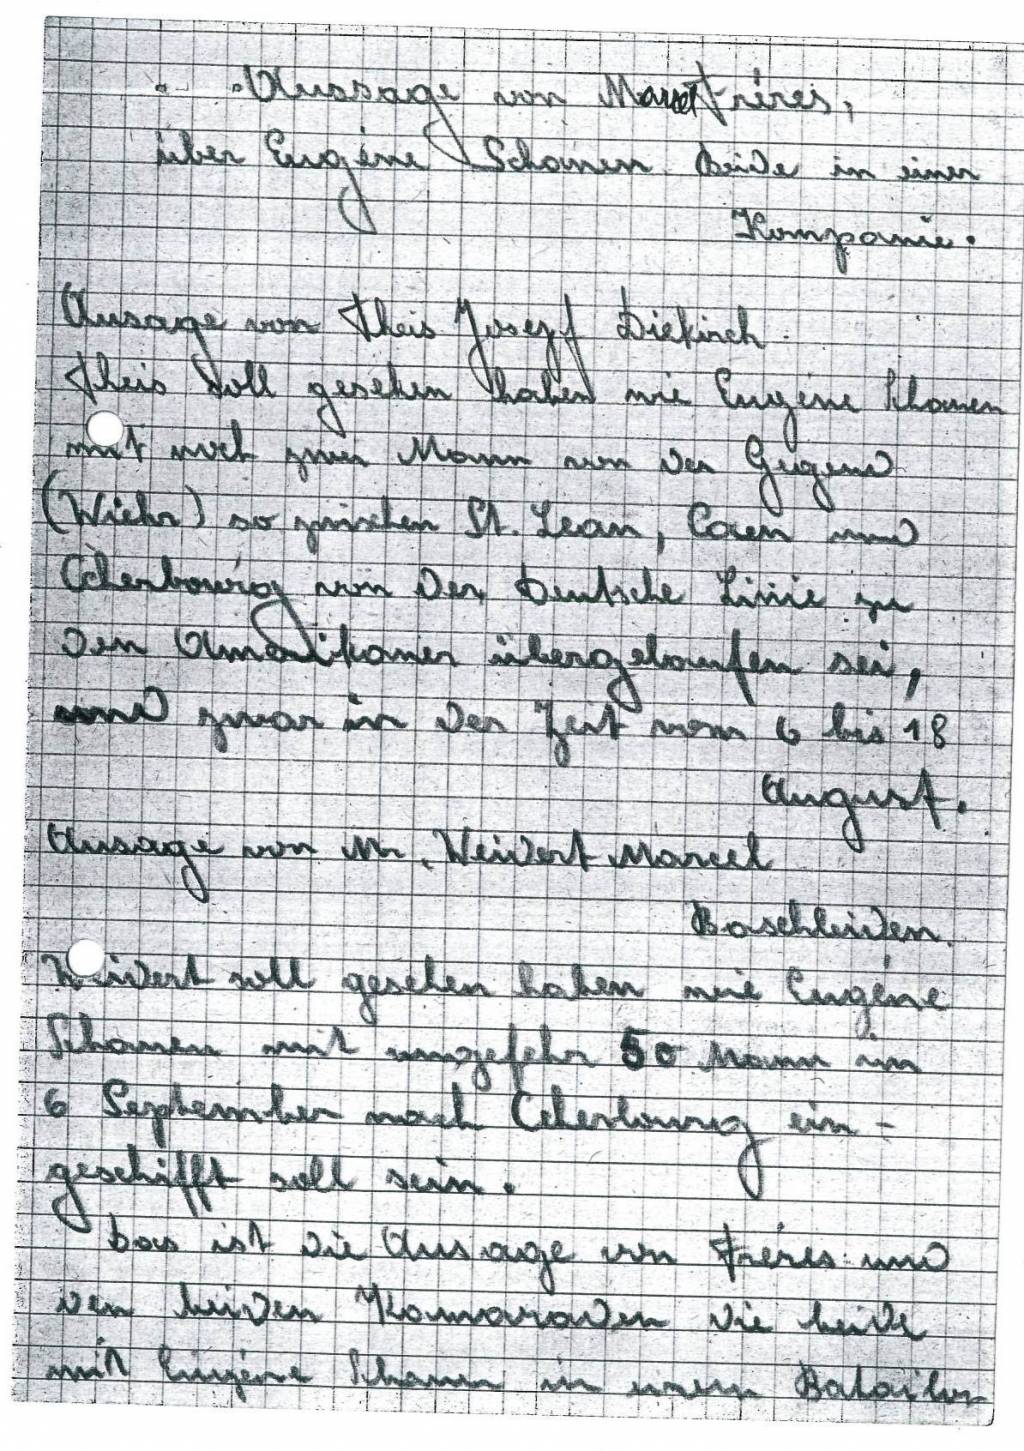 Aussage von Marcel Frères,
über Eugéne Schomen beide in einer
Kompanie.
Ausage von Theis Josepf Diekirch
Theis soll gesehen haben wie Eugéne Schomen
mit noch zwei Mann von der Gegend
(Wiehr) so zwischen St. Lean, Caen und
Cherbourg von der Deutsche Linie zu
den Amerikaner übergelaufen sei,
und zwar in der Zeit vom 6 bis 18
August.
Ausage von Mr. Weidert Marcel
Boschleiden.
Weidert soll gesehen haben wie Eugéne
Schomen mit ungefehr 50 Mann im
6 September nach Cherbourg ein-
geschifft soll sein.
Das ist die Ausage von Fréres und
den beiden Kamaraden die beide
mit Eugéne Schomen in einem Batailon